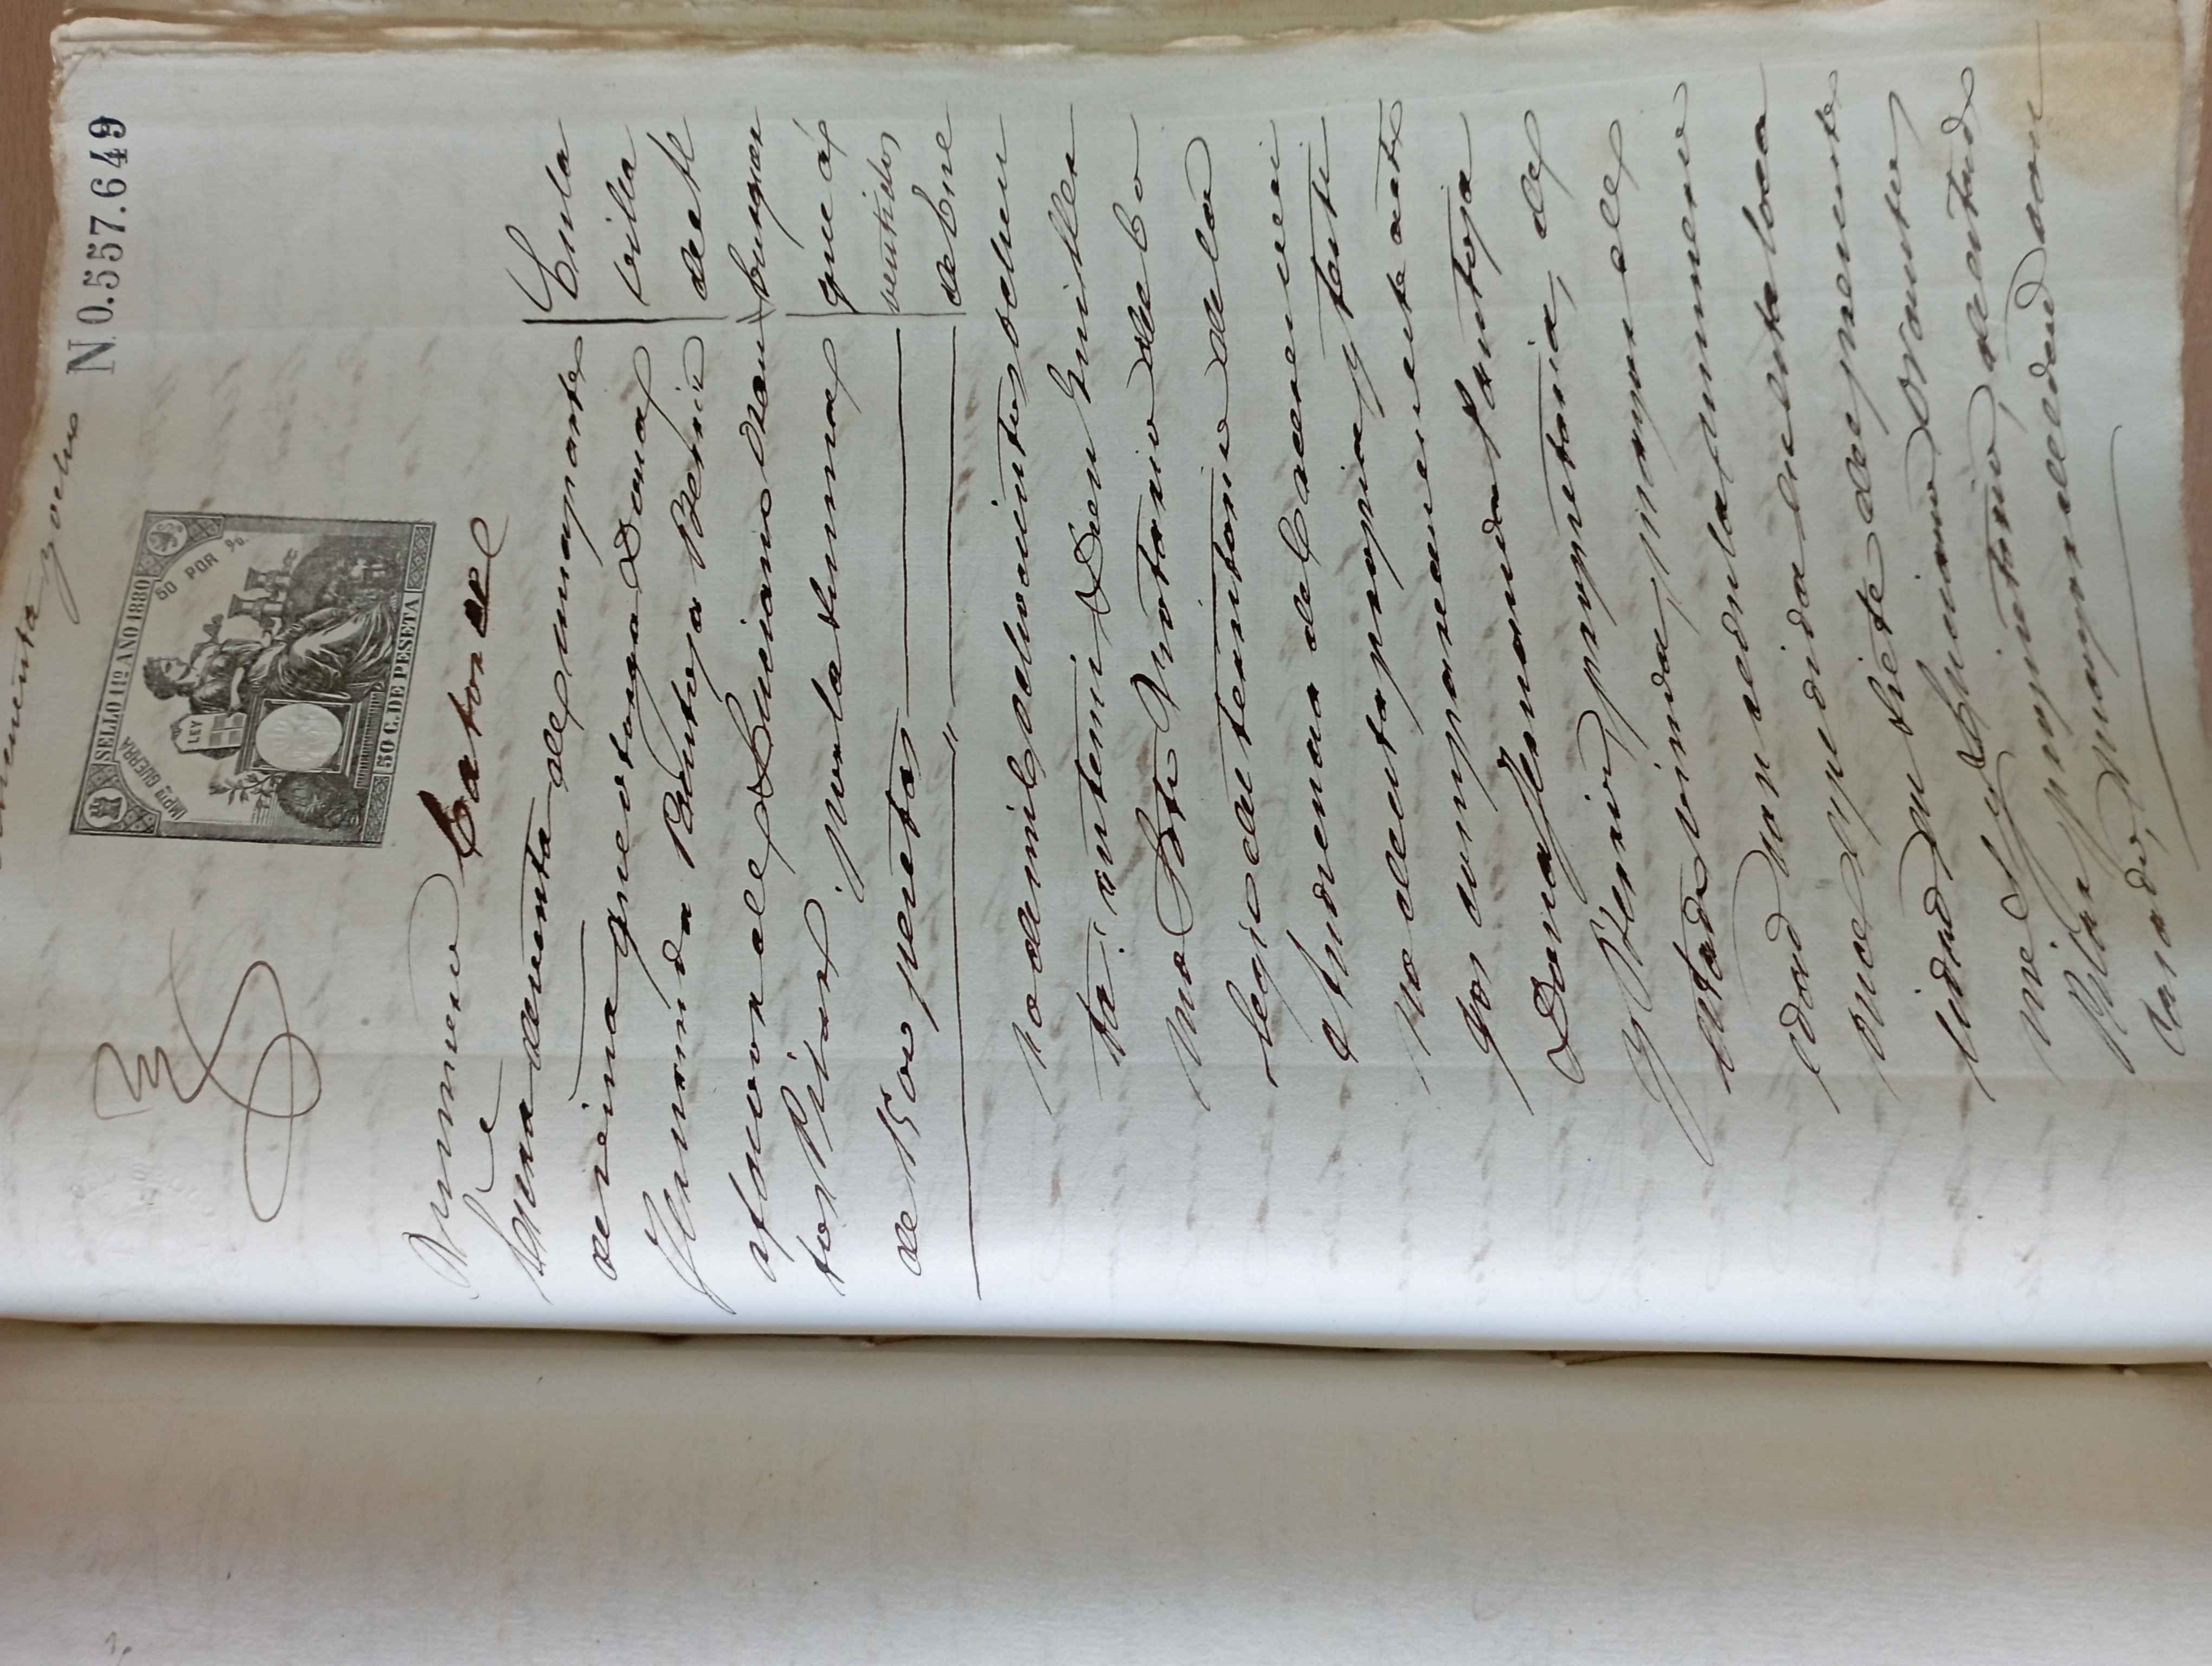 cincuenta y ocho
N 0.557.649
SELLO 11º AÑO 1880
IMPTO GUERRA 50 POR %
LEY
50 C. DE PESETA
Numero Catorce
Escra de venta de una parte
de reina que otorga Dona
Fernanda Pantoja Berrio
a favor de Luciano Oran
tos Pilar. por la suma
de 1500 pesetas
En la
villa
de Al
burquer
que á
ventidos
de Ene
ro de mil ochocientos ochen
ta: ante mi Don Guiller
mo Soto Notario del Co
legio del territorio de la
Audiencia de Caceres veci
no de esta propia y testi
gos comparecen de una parte
Dona Fernanda Pantoja
y Berrio, propietaria, de
estado viuda, mayor de
edad con cedula numero
once espedida en esta loca
lidad en siete del presente
mes y Luciano Orantos
Pilar propietario, de estado
casado, mayor de edad con